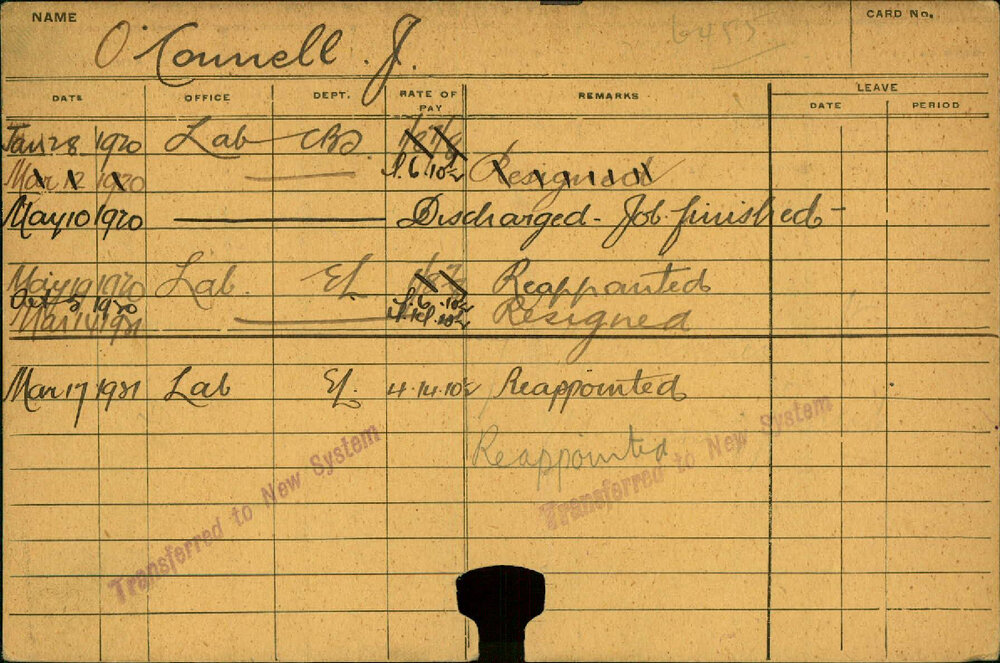 NAME
CARD No.
O'Connell. J.
6455
DATE OFFICE DEPT. RATE OF PAY REMARKS LEAVE
DATE PERIOD
Jan 28 1920 Lab
Mar 12 1920 4.6.10½ Resigned
May 10 1920 Discharged - Job finished -
May 19 1920 Lab. El. Reappointed
Oct 1920
Mar 1921 Resigned
Mar 17 1921 Lab El. 4.14.10½ Reappointed
Reappointed
Transferred to New System
Transferred to New System